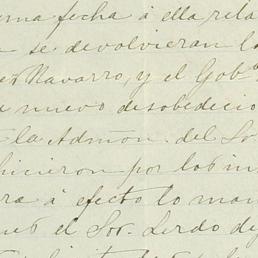 ma fecha á ella rela
se devolvieran lo
Navarro, y el Gobº
nuevo desobedecio
la Admōn. del So
hicieron por los in
ra á efecto lo man
el Sor. Lerdo de